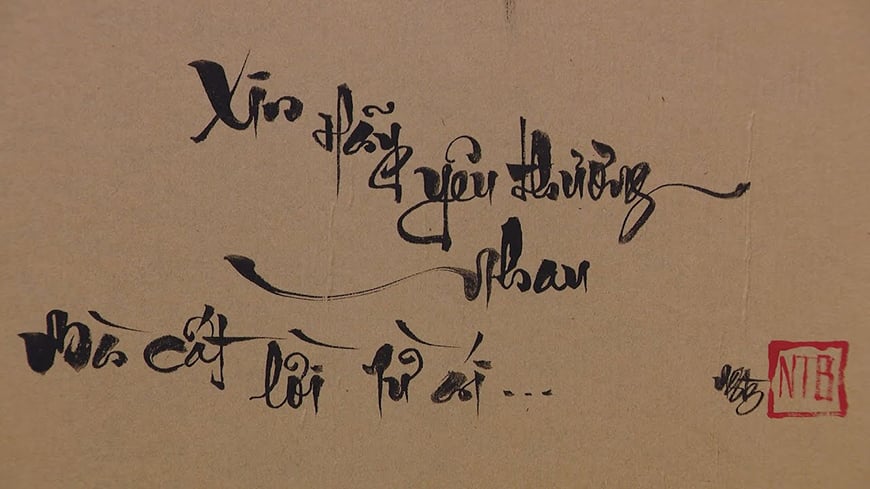 Xin hãy yêu thương
nhau
mà cất lời từ ái...
NTB